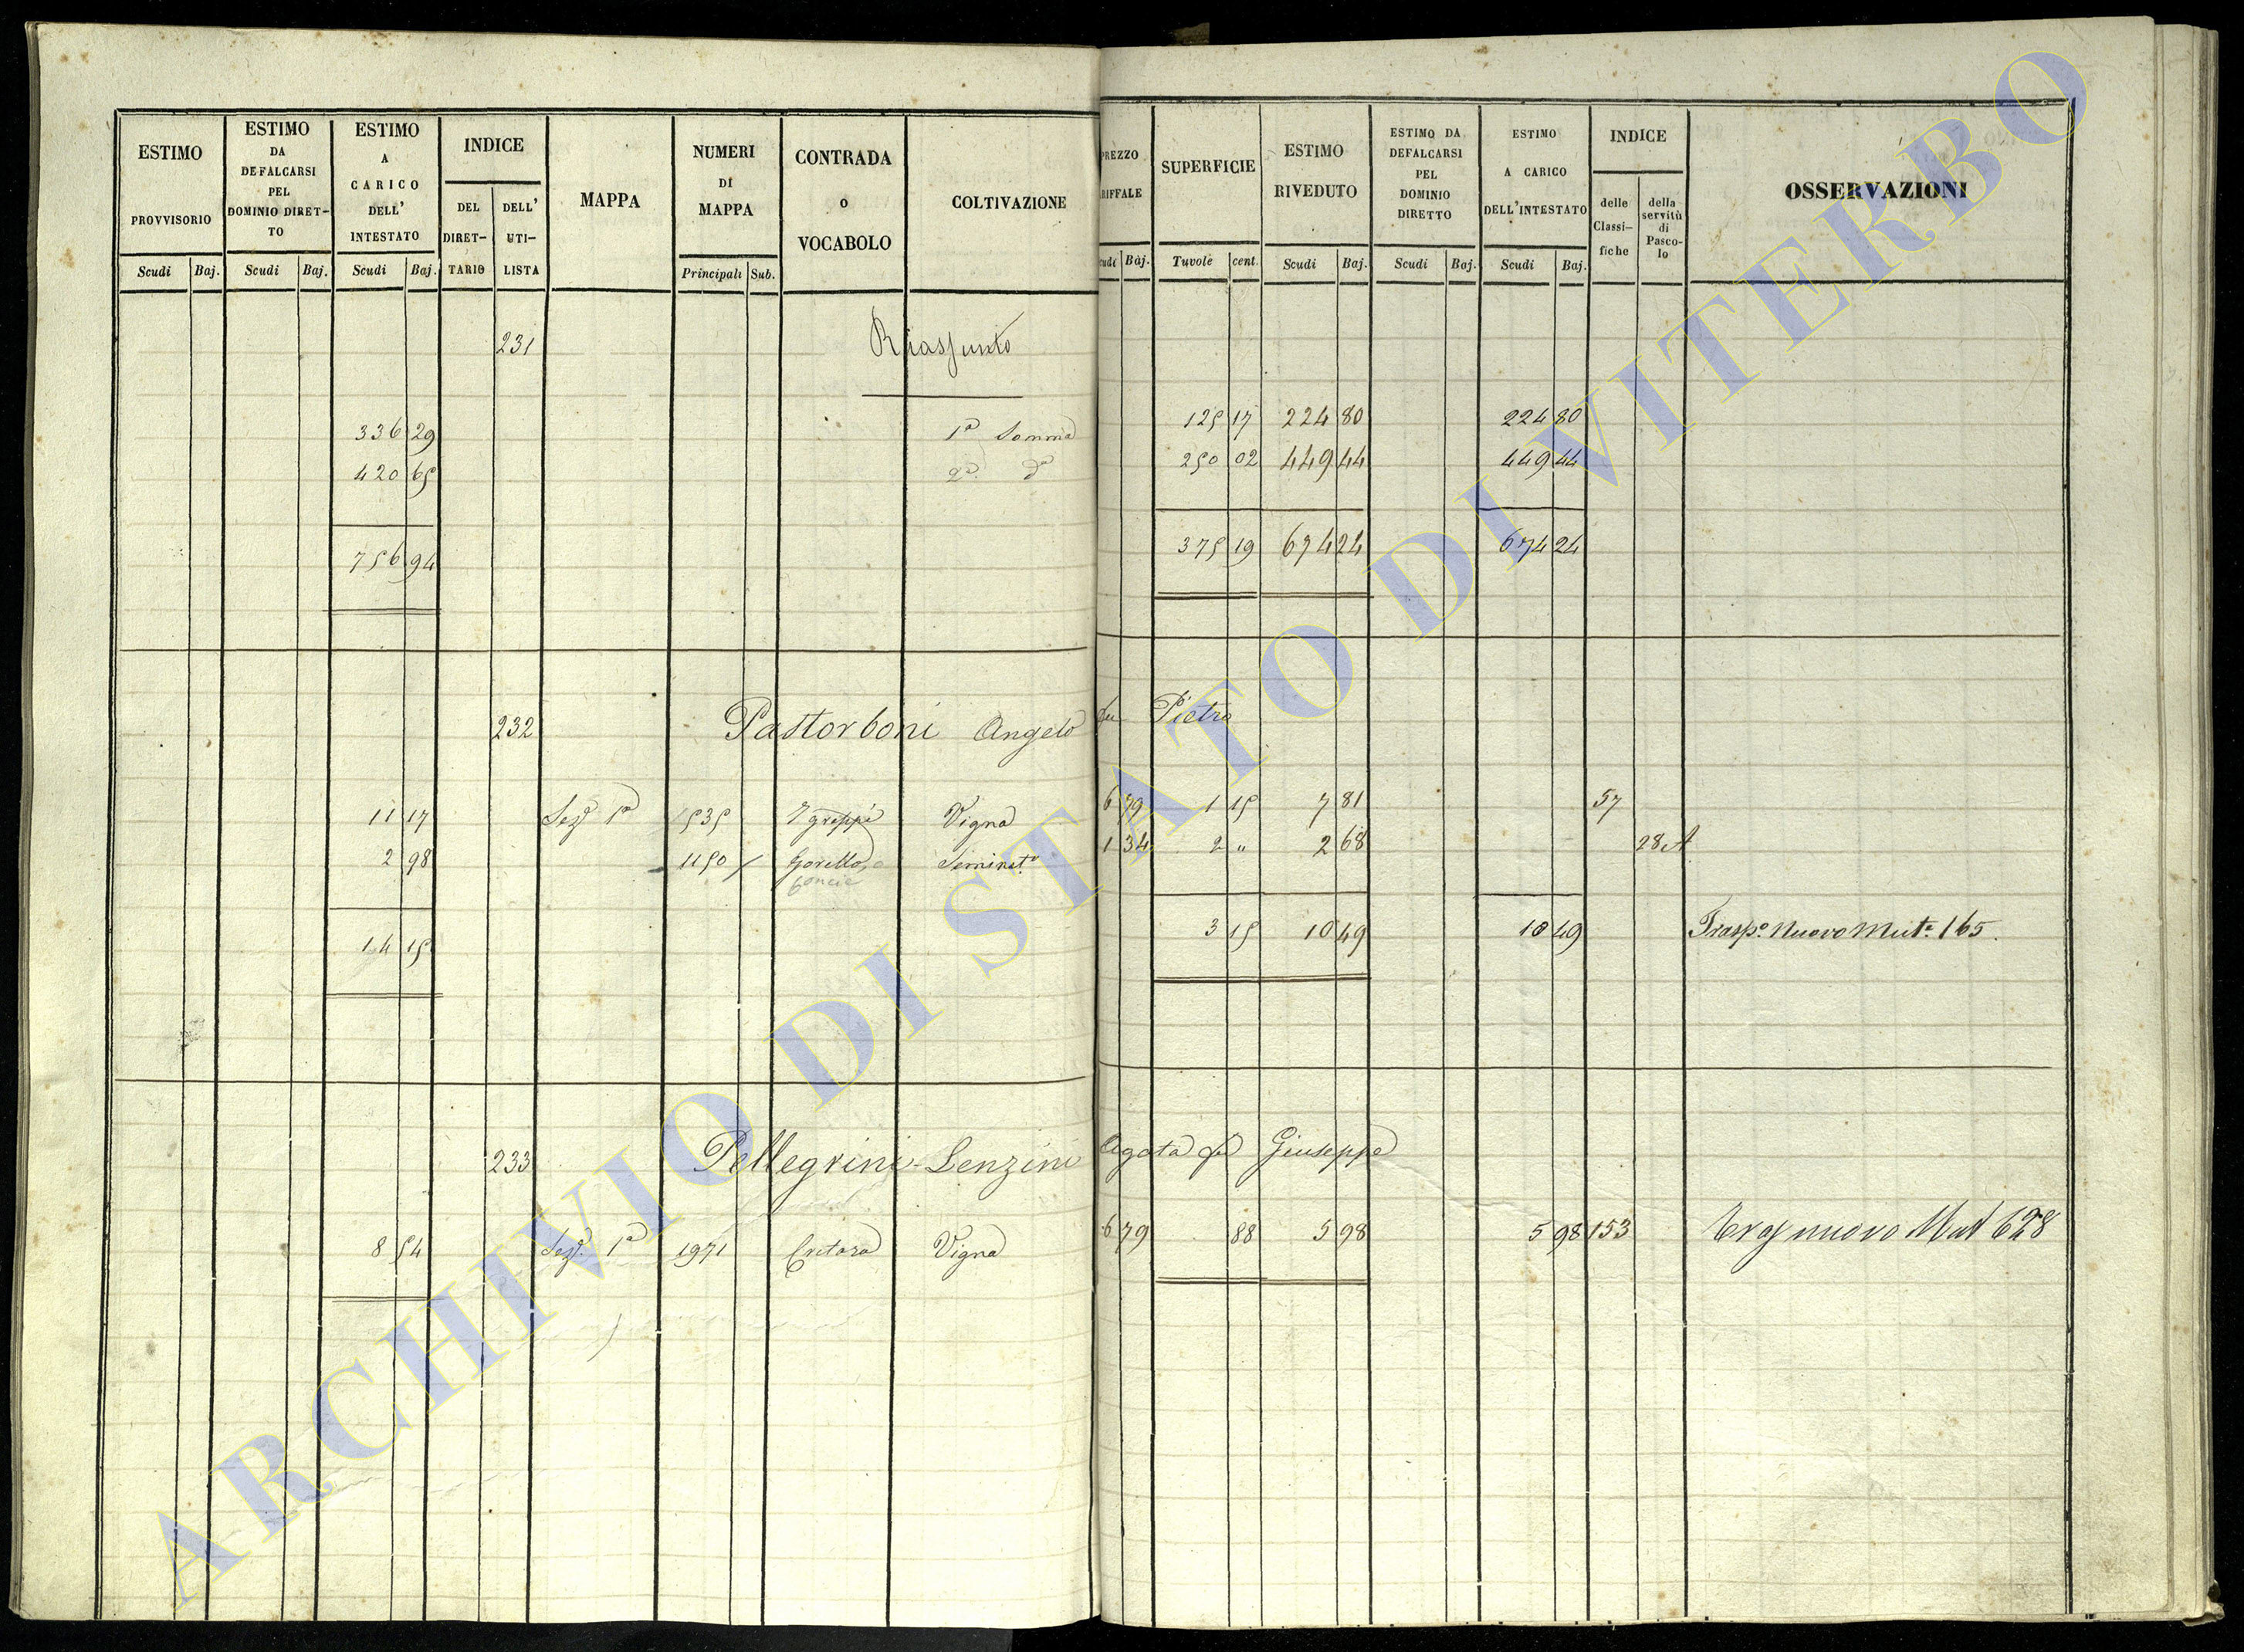 ESTIMO PROVVISORIO Scudi Baj.
ESTIMO DA DEFALCARSI PEL DOMINIO DIRET-TO Scudi Baj.
ESTIMO A CARICO DELL' INTESTATO Scudi Baj.
INDICE DEL DIRET-TARIO DELL' UTI-LISTA
MAPPA
NUMERI DI MAPPA Principali Sub.
CONTRADA o VOCABOLO
COLTIVAZIONE
PREZZO RIFFALE udi Baj.
SUPERFICIE Tavole cent.
ESTIMO RIVEDUTO Scudi Baj.
ESTIMO DA DEFALCARSI PEL DOMINIO DIRETTO Scudi Baj.
ESTIMO A CARICO DELL'INTESTATO Scudi Baj.
INDICE delle Classi-fiche della servitù di Pasco-lo
OSSERVAZIONI
231 Riassunto
336 29 1ª Somma 125 17 224 80 224 80
420 65 2ª dª 250 02 449 44 449 44
756 94 375 19 674 24 674 24
232 Pastorboni Angelo fu Pietro
11 17 Sezº 1ª 1535 Vigna 6 79 1 15 7 81 57
2 98 1150 Gorello Seminatº 1 34 2 " 2 68 28 A
14 15 3 15 10 49 10 49 Traspº Nuovo Mutª 165.
233 Pellegrini-Lenzini Agata di Giuseppe
8 54 Sezº 1ª 1971 Cretara Vigna 6 79 88 5 98 5 98 153 Tras nuovo Mut 628
ARCHIVIO DI STATO DI VITERBO